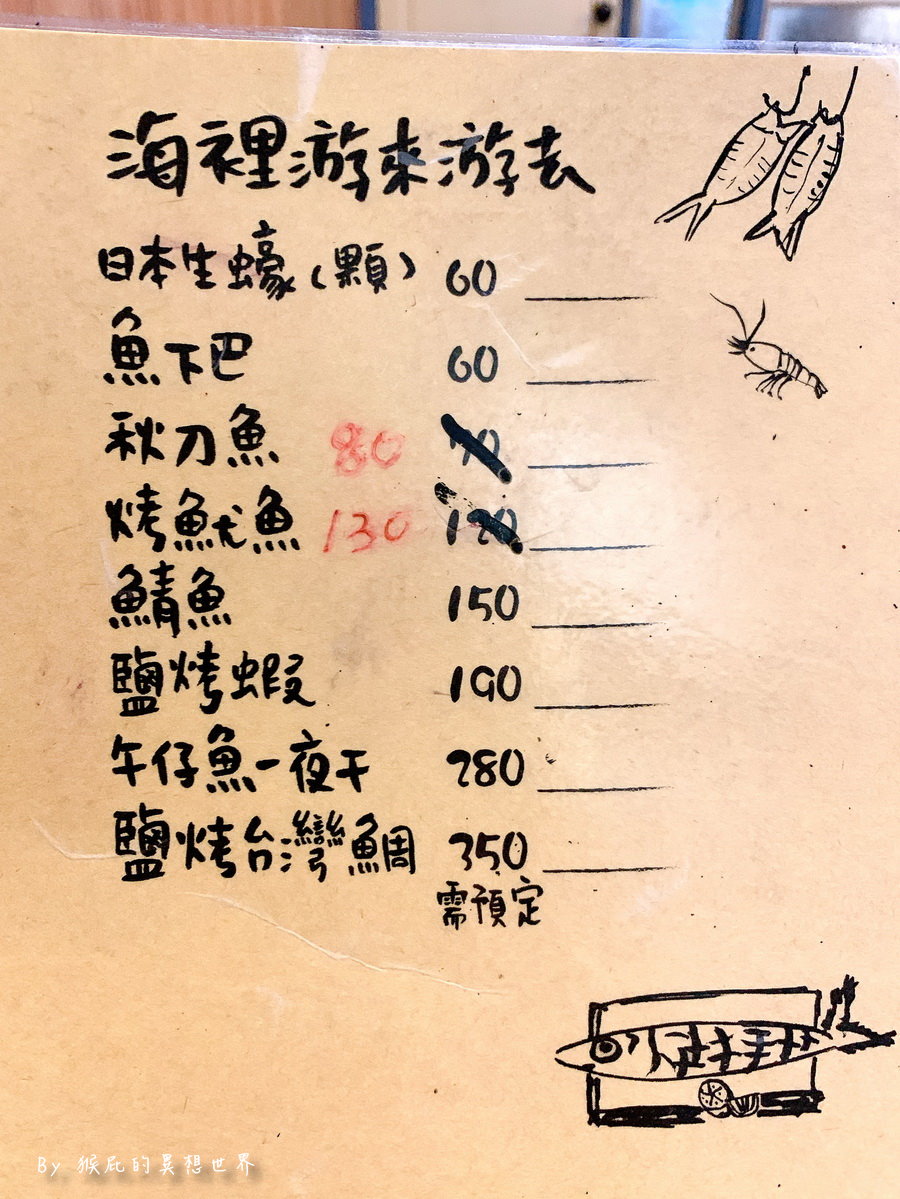 海裡游來游去
日本生蠔(顆) 60
魚下巴 60
秋刀魚 80
烤魷魚 130 120
鯖魚 150
鹽烤蝦 190
午仔魚一夜干 280
鹽烤台灣鯛 350
需預定
By 猴屁的異想世界